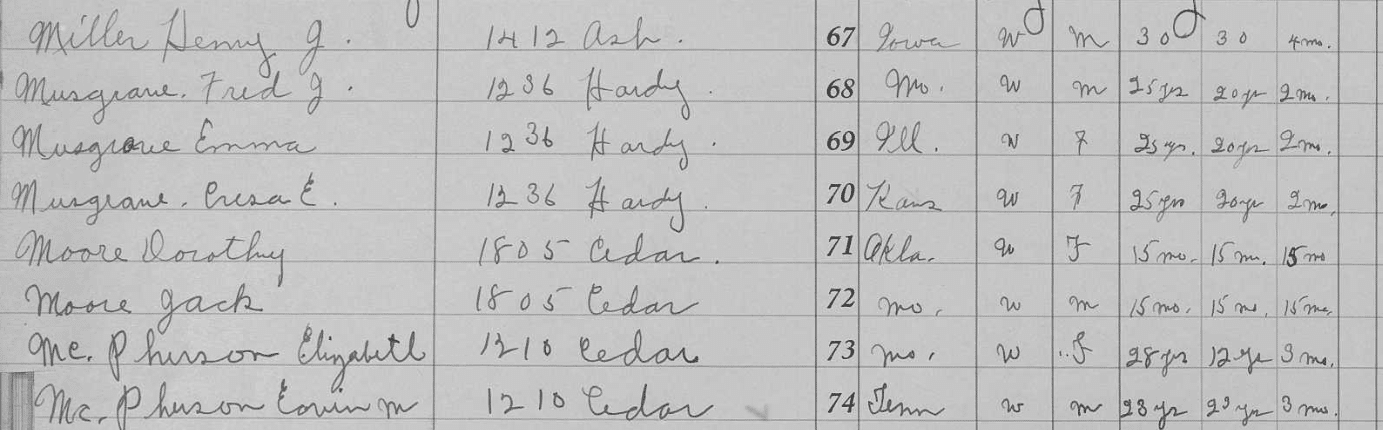 Miller Henry J. 1412 Ash. 67 Iowa W M 30 30 4 mo.
Musgrave. Fred J. 1236 Hardy. 68 Mo. W M 25 yrs 20 yr 2 mo.
Musgrave Emma 1236 Hardy. 69 Ill. W F 25 yr. 20 yr 2 mo.
Musgrave. E. 1236 Hardy. 70 Kans W F 25 yrs 20 yr 2 mo.
Moore Dorothy 1805 Cedar. 71 Okla. W F 15 mo. 15 mo. 15 mo
Moore Jack 1805 Cedar 72 mo. W M 15 mo. 15 mo. 15 mo.
Mc. Pherson Elizabeth 1210 Cedar 73 mo. W F 28 yr 12 yr 3 mo.
Mc. Pherson M 1210 Cedar 74 Tenn W M 23 yr 23 yr 3 mo.